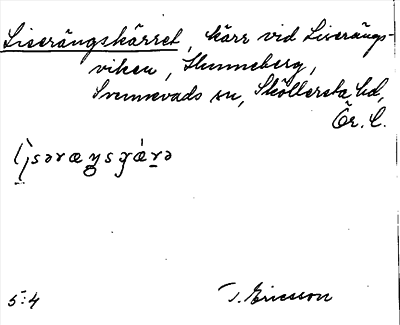 Liserängskärret, kärr vid Liserängs-
viken, Hunneberg,
Svennevads sn, Sköllersta hd,
Ör. l.
5:4
T. Ericsson